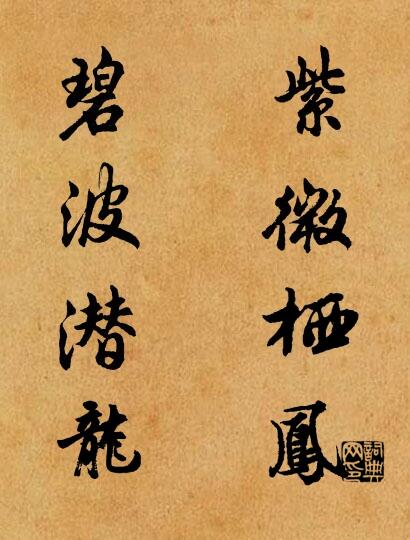 紫微栖鳳
碧波潜龍
詞典网印